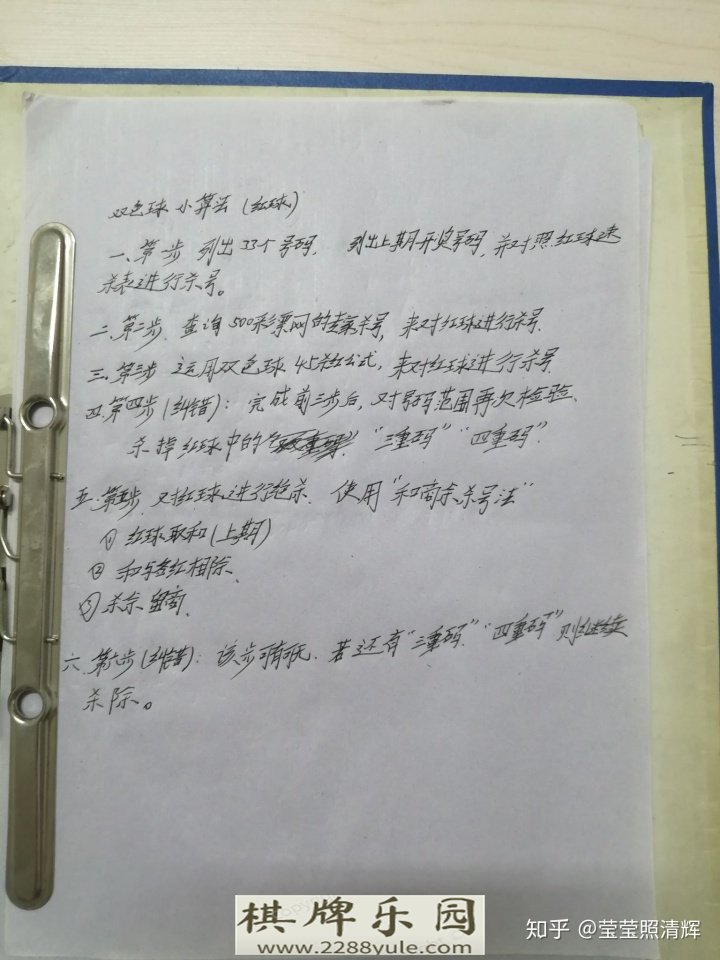 双色球小算法(红球)
一、第一步 列出33个号码, 列出上期开奖号码,并对照红球速
杀表进行杀号。
二、第二步 查询500彩票网的杀号,来对红球进行杀号.
三、第三步 运用双色球45杀红公式,来对红球进行杀号
四.第四步(纠错):完成前三步后,对号码范围再次检验、
杀掉红球中的 "三重码" "四重码".
五.第五步 对红球进行绝杀. 使用"和商余杀号法"
① 红球取和(上期)
② 和与各红相除、
③ 杀余留商.
六.第六步(纠错):该步可有可无.若还有"三重码" "四重码"则继续
杀除。
棋牌乐园
www.2288yule.com
知乎 @莹莹照清辉